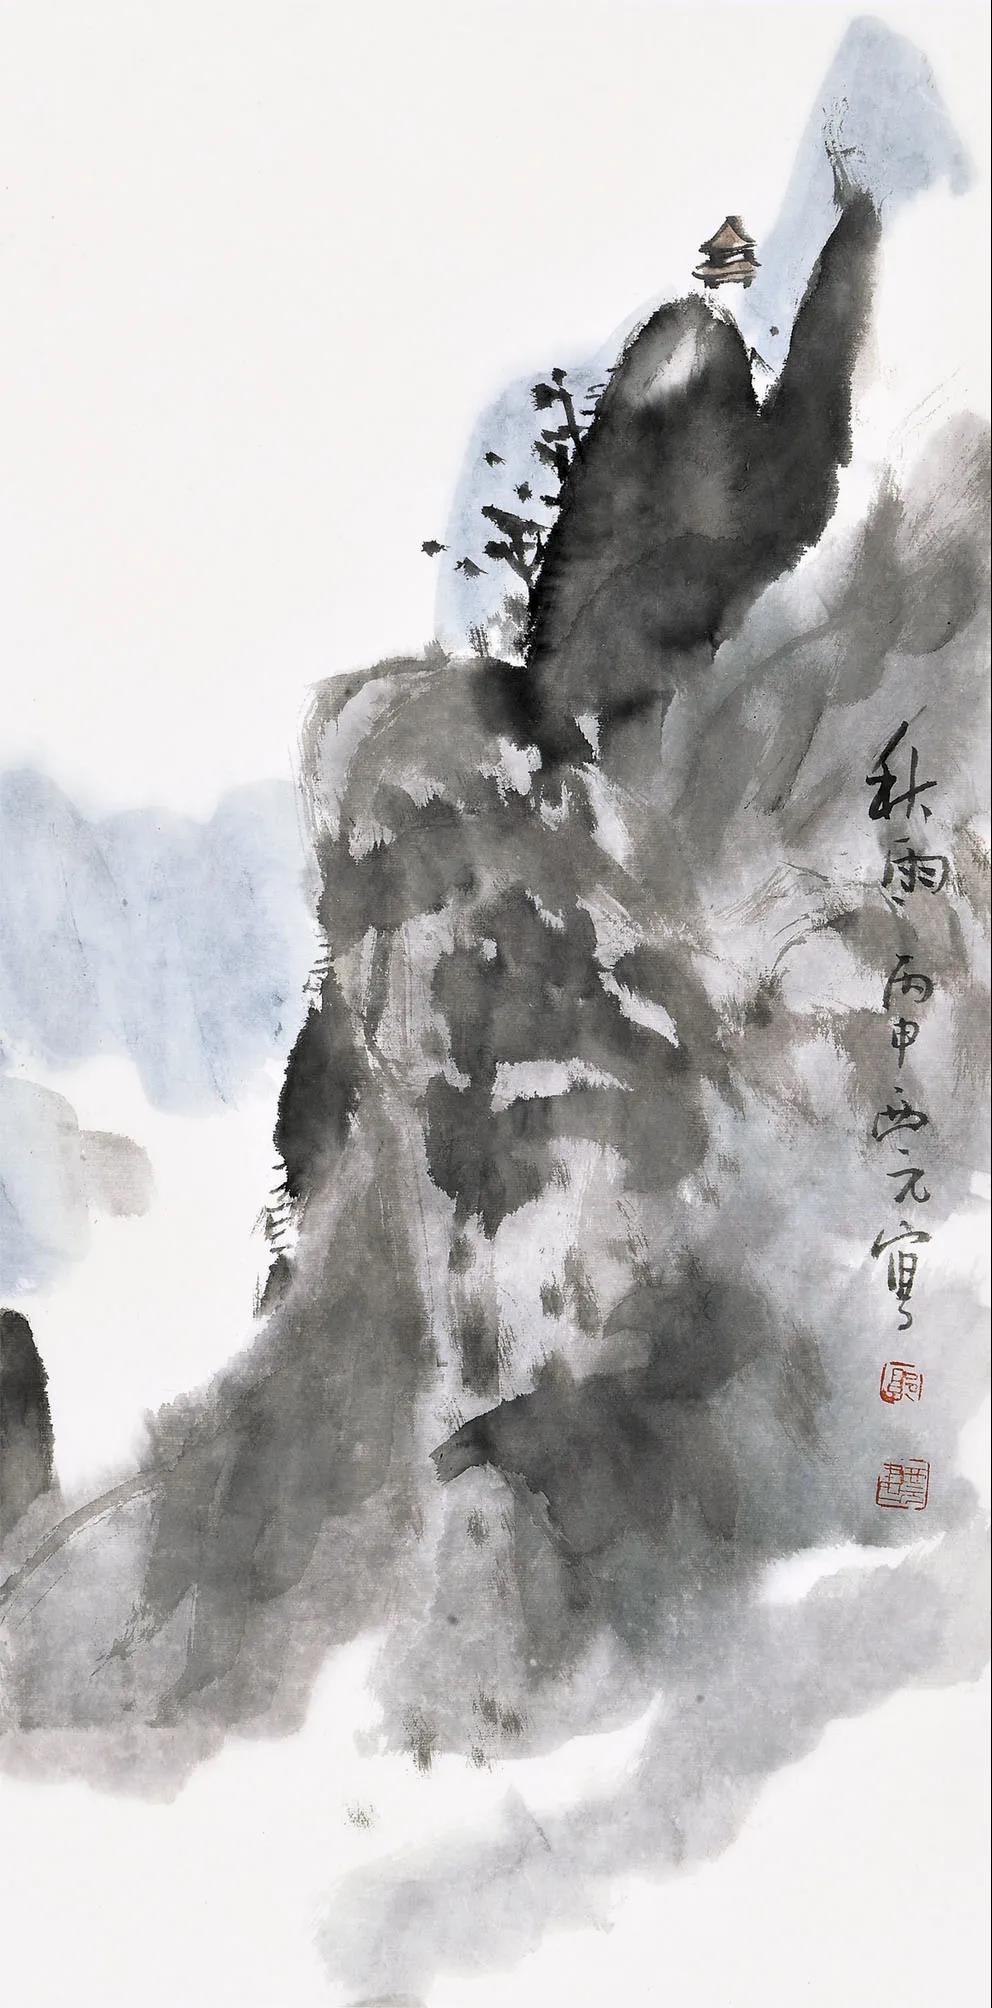 秋雨丙申西元寫